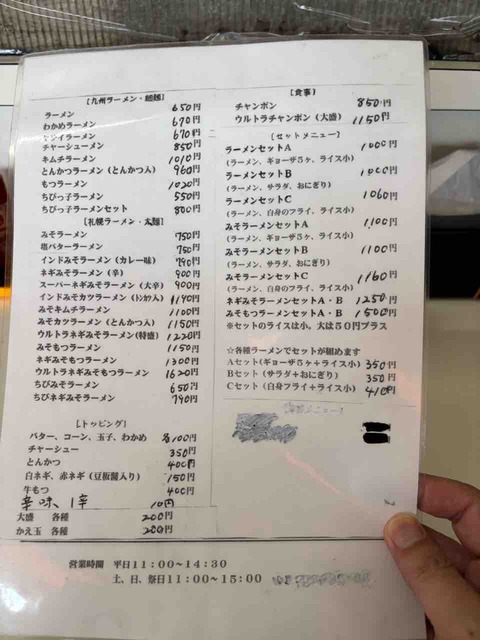 [九州ラーメン・細麺]
ラーメン 650円
わかめラーメン 670円
ヤサイラーメン 670円
チャーシューメン 850円
キムチラーメン 1010円
とんかつラーメン(とんかつ入) 960円
もつラーメン 1020円
ちびっ子ラーメン 550円
ちびっ子ラーメンセット 800円
[札幌ラーメン・太麺]
みそラーメン 750円
塩バターラーメン 750円
インドみそラーメン(カレー味) 790円
ネギみそラーメン(辛) 900円
スーパーネギみそラーメン(大辛) 900円
インドみそカツラーメン(トンカツ入) 1190円
みそキムチラーメン 1100円
みそカツラーメン(とんかつ入) 1150円
ウルトラネギみそラーメン(特盛) 1220円
みそもつラーメン 1150円
ネギみそもつラーメン 1300円
ウルトラネギみそもつラーメン 1620円
ちびみそラーメン 650円
ちびネギみそラーメン 790円
[トッピング]
バター、コーン、玉子、わかめ 各100円
チャーシュー 350円
とんかつ 400円
白ネギ、赤ネギ(豆板醤入り) 150円
牛もつ 400円
辛味、1辛 10円
大盛 各種 200円
かえ玉 各種 200円
[食事]
チャンポン 850円
ウルトラチャンポン(大盛) 1150円
[セットメニュー]
ラーメンセットA 1000円
(ラーメン、ギョーザ5ヶ、ライス小)
ラーメンセットB 1000円
(ラーメン、サラダ、おにぎり)
ラーメンセットC 1060円
(ラーメン、白身のフライ、ライス小)
みそラーメンセットA 1100円
(ラーメン、ギョーザ5ヶ、ライス小)
みそラーメンセットB 1100円
(ラーメン、サラダ、おにぎり)
みそラーメンセットC 1160円
(ラーメン、白身のフライ、ライス小)
ネギみそラーメンセットA・B 1250円
みそもつラーメンセットA・B 1500円
※セットのライスは小。大は50円プラス
☆各種ラーメンでセットが組めます
Aセット(ギョーザ5ヶ+ライス小) 350円
Bセット(サラダ+おにぎり) 350円
Cセット(白身フライ+ライス小) 410円
営業時間 平日11:00~14:30
土、日、祭日11:00~15:00